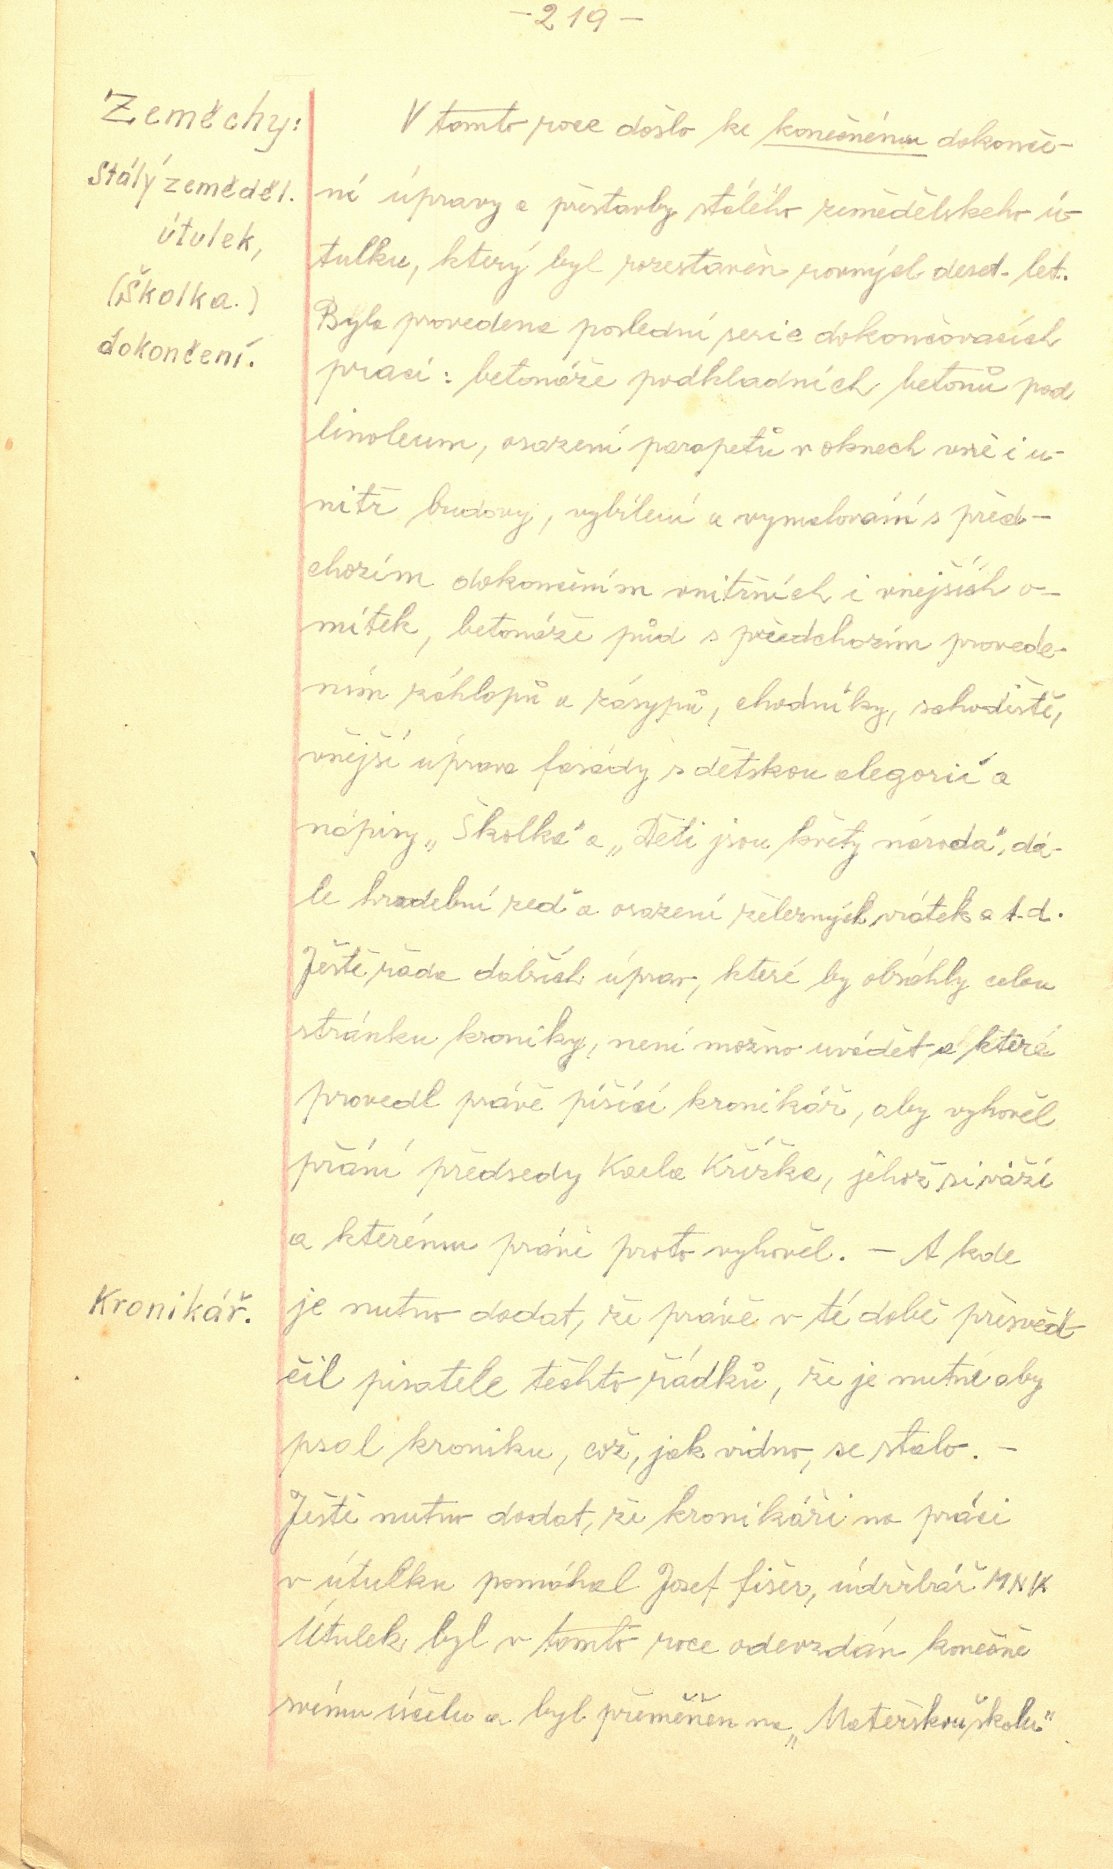 -219-
Zeměchy:
Stálý zeměděl.
útulek,
(Školka.)
dokončení.
V tomto roce došlo ke konečnému dokonče-
ní úpravy a přestavby stálého zemědělskeho ú-
tulku, který byl rozestavěn rovných deset let.
Byla provedena poslední serie dokončovacích
prací: betonáže podkladních betonů pod
linoleum, osazení parapetů v oknech vně i u-
nitř budovy, vybílení a vymalování s před-
chozím dokončením vnitřních i vnejších o-
mítek, betonáže půd s předchozím provede-
ním záhlopů a zásypů, chodníky, schodiště,
vnější úprava fasády s dětskou alegorií a
nápisy „Školka" a „Děti jsou květy národa", dá-
le hradební zeď a osazení železných vrátek a t.d.
Ještě řada dalších úprav, které by obsáhly celou
stránku kroniky, není možno uvádět a které
provedl právě píšící kronikář, aby vyhověl
přání předsedy Karla Křížka, jehož si váží
a kterému právě proto vyhověl. - A kde
Kronikář.
je nutno dodat, že právě v té době přesvěd-
čil pisatele těchto řádků, že je nutné aby
psal kroniku, což, jak vidno, se stalo. -
Ještě nutno dodat, že kronikáři na práci
v útulku pomáhal Josef Fišer, údržbář MNV
Útulek byl v tomto roce odevzdán konečně
svému účelu a byl přeměněn na „Mateřskou školu"